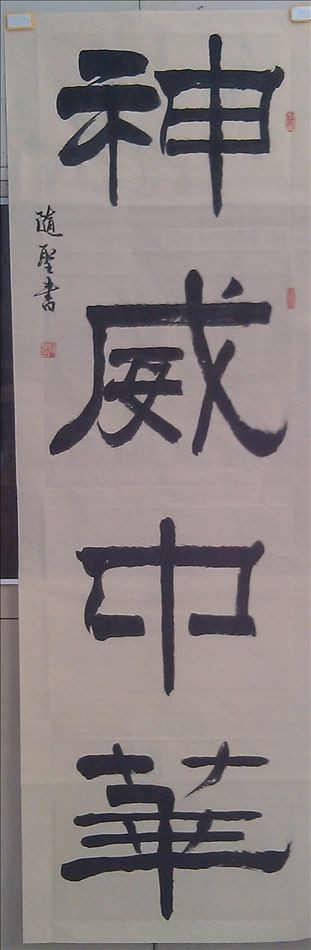 神威中華
隨聖書